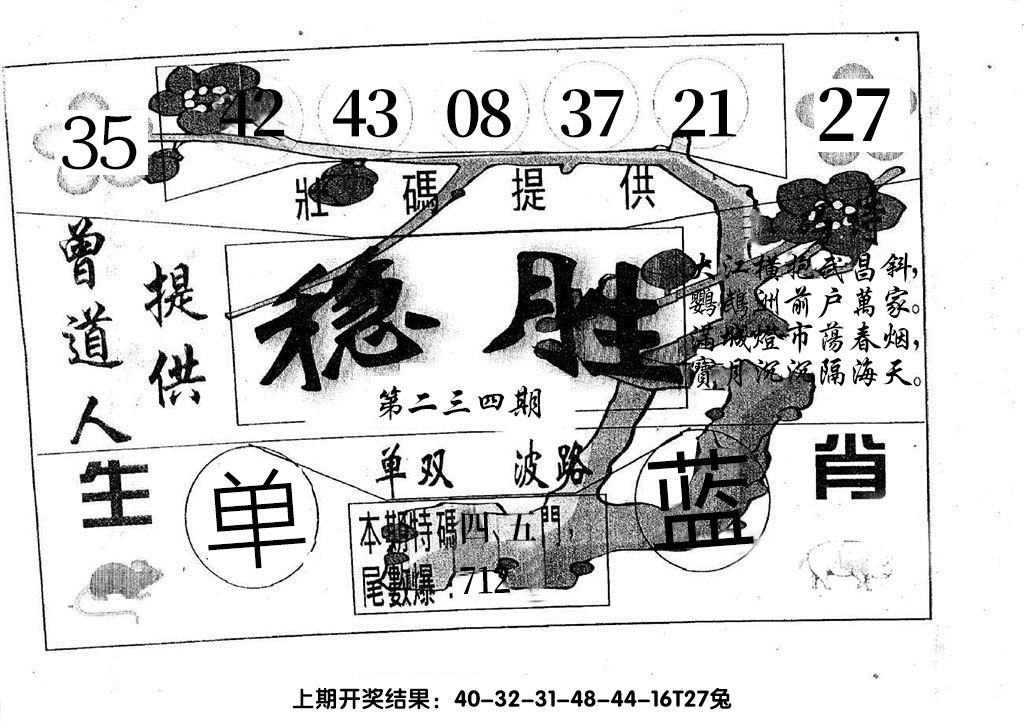 35 42 43 08 37 21 27
壯碼提供
特
曾道人
提供
稳胜
第二三四期
大江橫抱武昌斜，
鸚鵡洲前户萬家。
滿城燈市蕩春烟，
寶月沉沉隔海天。
单双 波路
生肖
单
蓝
本期特碼四、五門，
尾數爆：712
上期开奖结果：40-32-31-48-44-16T27兔